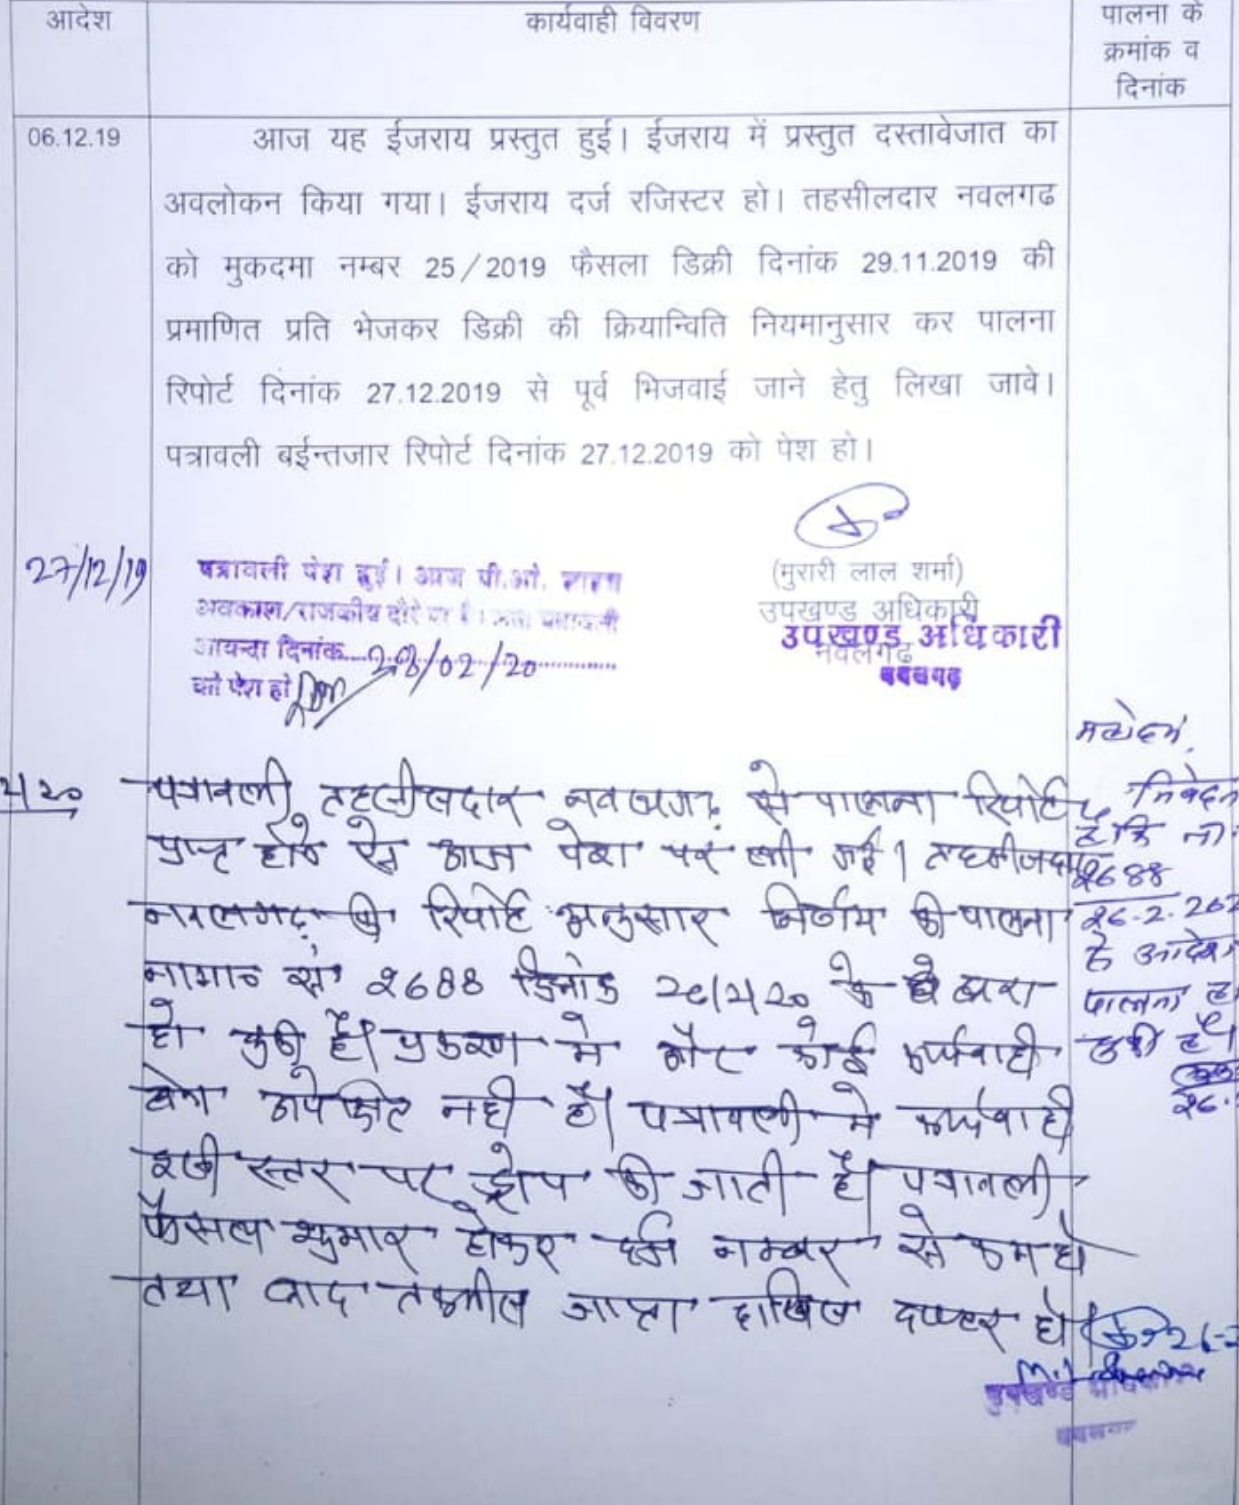 आदेश
कार्यवाही विवरण
पालना के
क्रमांक व
दिनांक
06.12.19
आज यह ईजराय प्रस्तुत हुई। ईजराय में प्रस्तुत दस्तावेजात का
अवलोकन किया गया। ईजराय दर्ज रजिस्टर हो। तहसीलदार नवलगढ
को मुकदमा नम्बर 25/2019 फैसला डिक्री दिनांक 29.11.2019 की
प्रमाणित प्रति भेजकर डिक्री की क्रियान्विति नियमानुसार कर पालना
रिपोर्ट दिनांक 27.12.2019 से पूर्व भिजवाई जाने हेतु लिखा जावे।
पत्रावली बईन्तजार रिपोर्ट दिनांक 27.12.2019 को पेश हो।
(मुरारी लाल शर्मा)
उपखण्ड अधिकारी
नवलगढ
उपखण्ड अधिकारी
नवलगढ़
27/12/19
पत्रावली पेश हुई। आज पी.ओ. साहब
अवकाश/राजकीय दौरे पर है। अतः पत्रावली
आयन्दा दिनांक 28/02/20
को पेश हो
पत्रावली तहसीलदार नवलगढ़ से पालना रिपोर्ट
प्राप्त होने आज पेशी पर ली गई। तहसीलदार
नवलगढ़ की रिपोर्ट अनुसार निर्णय की पालना
नामा० सं 2688 दिनांक 26/2/20 के द्वारा
हो चुकी है। प्रकरण में और कोई कार्यवाही
शेष अपेक्षित नहीं है। पत्रावली में कार्यवाही
इसी स्तर पर ड्रोप की जाती है। पत्रावली
फैसल शुमार होकर दर्ज नम्बर से कम हो
तथा बाद तकमील जाप्ता दाखिल दफ्तर हो।
महोदय,
निवेदन
है कि ना.
2688
26.2.202
से आदेश
पालना हो
चुकी है।
26.
26-
उपखण्ड अधिकारी
नवलगढ़